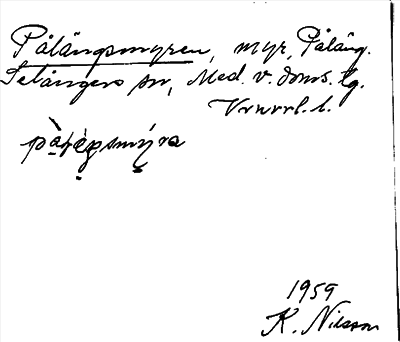 Pålängsmyren, myr, Påläng.
Selångers sn, Med. v. doms. tg.
Vrnrrl. l.
pàlàŋsmýra
1959
K. Nilsson